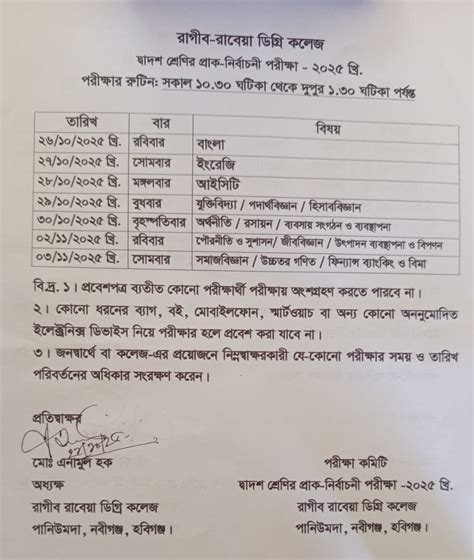 রাগীব-রাবেয়া ডিগ্রি কলেজ
দ্বাদশ শ্রেণির প্রাক-নির্বাচনী পরীক্ষা - ২০২৫ খ্রি.
পরীক্ষার রুটিন: সকাল ১০.৩০ ঘটিকা থেকে দুপুর ১.৩০ ঘটিকা পর্যন্ত
তারিখ বার বিষয়
২৬/১০/২০২৫ খ্রি. রবিবার বাংলা
২৭/১০/২০২৫ খ্রি. সোমবার ইংরেজি
২৮/১০/২০২৫ খ্রি. মঙ্গলবার আইসিটি
২৯/১০/২০২৫ খ্রি. বুধবার যুক্তিবিদ্যা / পদার্থবিজ্ঞান / হিসাববিজ্ঞান
৩০/১০/২০২৫ খ্রি. বৃহস্পতিবার অর্থনীতি / রসায়ন / ব্যবসায় সংগঠন ও ব্যবস্থাপনা
০২/১১/২০২৫ খ্রি. রবিবার পৌরনীতি ও সুশাসন/ জীববিজ্ঞান / উৎপাদন ব্যবস্থাপনা ও বিপণন
০৩/১১/২০২৫ খ্রি. সোমবার সমাজবিজ্ঞান / উচ্চতর গণিত / ফিন্যান্স ব্যাংকিং ও বিমা
বি.দ্র. ১। প্রবেশপত্র ব্যতীত কোনো পরীক্ষার্থী পরীক্ষায় অংশগ্রহণ করতে পারবে না।
২। কোনো ধরনের ব্যাগ, বই, মোবাইলফোন, স্মার্টওয়াচ বা অন্য কোনো অননুমোদিত
ইলেক্ট্রনিক্স ডিভাইস নিয়ে পরীক্ষার হলে প্রবেশ করা যাবে না।
৩। জনস্বার্থে বা কলেজ-এর প্রয়োজনে নিম্নস্বাক্ষরকারী যে-কোনো পরীক্ষার সময় ও তারিখ
পরিবর্তনের অধিকার সংরক্ষণ করেন।
প্রতিস্বাক্ষর
মোঃ এনামুল হক
অধ্যক্ষ
রাগীব রাবেয়া ডিগ্রি কলেজ
পানিউমদা, নবীগঞ্জ, হবিগঞ্জ।
পরীক্ষা কমিটি
দ্বাদশ শ্রেণির প্রাক-নির্বাচনী পরীক্ষা -২০২৫ খ্রি.
রাগীব রাবেয়া ডিগ্রি কলেজ
পানিউমদা, নবীগঞ্জ, হবিগঞ্জ।